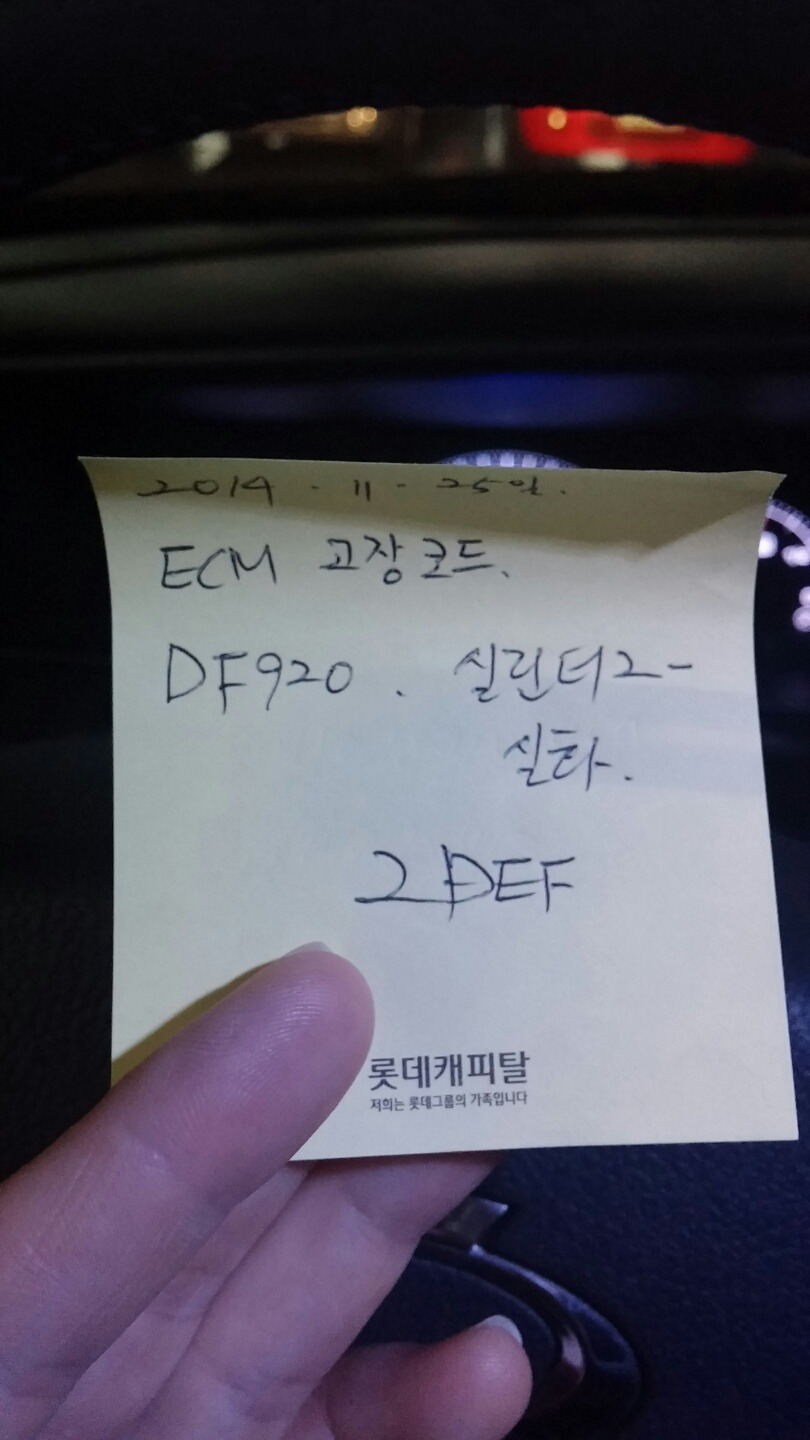 2014 . 11 . 25일.
ECM 고장코드.
DF920 . 실린더2-
실화.
2DEF
롯데캐피탈
저희는 롯데그룹의 가족입니다